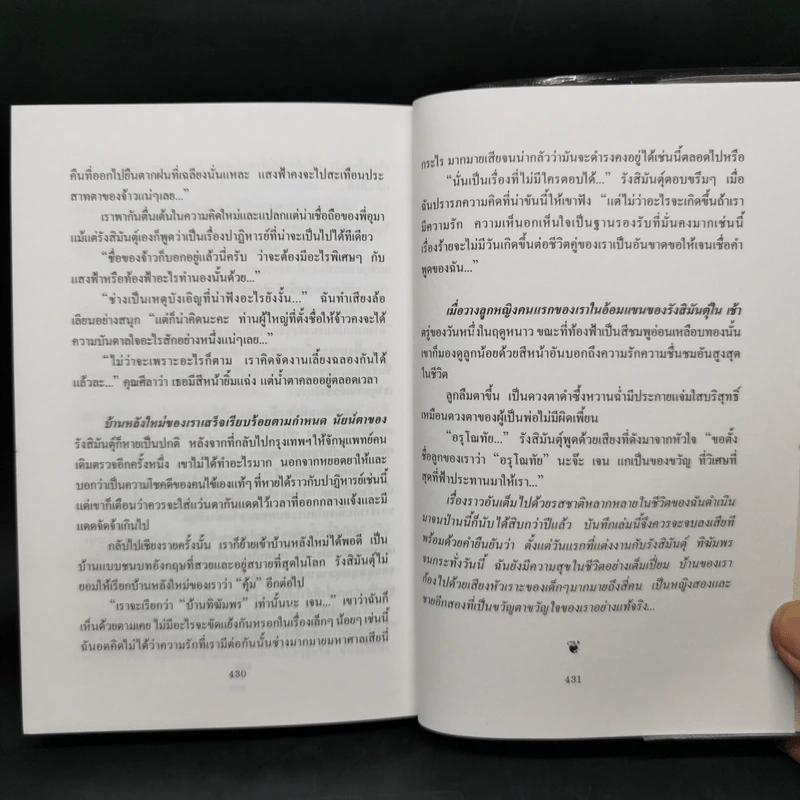 คืนที่ออกไปยืนตากฝนที่เฉลียงนั่นแหละ แสงฟ้าคงจะไปสะเทือนประ
สาทตาของจ้าวแน่ๆเลย..."
เราพากันตื่นเต้นในความคิดใหม่และแปลกแต่น่าเชื่อถือของพี่อุมา
แม้แต่รังสิมันตุ์เองก็พูดว่าเป็นเรื่องปาฏิหารย์ที่น่าจะเป็นไปได้ทีเดียว
"ชื่อของจ้าวก็บอกอยู่แล้วนี่ครับ ว่าจะต้องมีอะไรพิเศษๆ กับ
แสงฟ้าหรือท้องฟ้าอะไรทำนองนั้นด้วย..."
"ช่างเป็นเหตุบังเอิญที่น่าฟังอะไรยังงั้น..." ฉันทำเสียงล้อ
เลียนอย่างสนุก "แต่ก็น่าคิดนะคะ ท่านผู้ใหญ่ที่ตั้งชื่อให้จ้าวคงจะได้
ความบันดาลใจอะไรสักอย่างหนึ่งแน่ๆเลย..."
"ไม่ว่าจะเพราะอะไรก็ตาม เราคิดจัดงานเลี้ยงฉลองกันได้
แล้วละ..." คุณศีลาว่า เธอมีสีหน้ายิ้มแฉ่ง แต่น้ำตาคลออยู่ตลอดเวลา
บ้านหลังใหม่ของเราเสร็จเรียบร้อยตามกำหนด นัยน์ตาของ
รังสิมันตุ์ก็หายเป็นปกติ หลังจากที่กลับไปกรุงเทพฯให้จักษุแพทย์คน
เดิมตรวจอีกครั้งหนึ่ง เขาไม่ได้ทำอะไรมาก นอกจากหยอดยาให้และ
บอกว่าเป็นความโชคดีของคนไข้เองแท้ๆ ที่หายได้ราวกับปาฏิหารย์เช่นนี้
แต่เขาก็เตือนว่าควรจะใส่แว่นตากันแดดไว้เวลาที่ออกกลางแจ้งและมี
แดดจัดจ้าเกินไป
กลับไปเชียงรายครั้งนั้น เราก็ย้ายเข้าบ้านหลังใหม่ได้พอดี เป็น
บ้านแบบชนบทอังกฤษที่สวยและอยู่สบายที่สุดในโลก รังสิมันตุ์ไม่
ยอมให้เรียกบ้านหลังใหม่ของเราว่า "คุ้ม" อีกต่อไป
"เราจะเรียกว่า "บ้านทิฆัมพร" เท่านั้นนะ เจน..." เขาว่าฉันก็
เห็นด้วยตามเคย ไม่มีอะไรจะขัดแย้งกันหรอกในเรื่องเล็กๆ น้อยๆ เช่นนี้
ฉันอดคิดไม่ได้ว่าความรักที่เรามีต่อกันนั้นช่างมากมายมหาศาลเสียนี่
430
กระไร มากมายเสียจนน่ากลัวว่ามันจะดำรงคงอยู่ได้เช่นนี้ตลอดไปหรือ
"นั่นเป็นเรื่องที่ไม่มีใครตอบได้..." รังสิมันตุ์ตอบขรึมๆ เมื่อ
ฉันปรารภความคิดที่น่าขันนี้ให้เขาฟัง "แต่ไม่ว่าอะไรจะเกิดขึ้นถ้าเรา
มีความรัก ความเห็นอกเห็นใจเป็นฐานรองรับที่มั่นคงมากเช่นนี้
เรื่องร้ายจะไม่มีวันเกิดขึ้นต่อชีวิตคู่ของเราเป็นอันขาดขอให้เจนเชื่อคำ
พูดของฉัน..."
เมื่อวางลูกหญิงคนแรกของเราในอ้อมแขนของรังสิมันตุ์ใน เช้า
ตรู่ของวันหนึ่งในฤดูหนาว ขณะที่ท้องฟ้าเป็นสีชมพูอ่อนเหลือบทองนั้น
เขาก็มองดูลูกน้อยด้วยสีหน้าอันบอกถึงความรักความชื่นชมอันสูงสุด
ในชีวิต
ลูกลืมตาขึ้น เป็นดวงตาดำซึ้งหวานฉ่ำมีประกายแจ่มใสบริสุทธิ์
เหมือนดวงตาของผู้เป็นพ่อไม่มีผิดเพี้ยน
"อรุโณทัย..." รังสิมันตุ์พูดด้วยเสียงที่ดังมาจากหัวใจ "ขอตั้ง
ชื่อลูกของเราว่า "อรุโณทัย" นะจ๊ะ เจน แกเป็นของขวัญ ที่วิเศษที่
สุดที่ฟ้าประทานมาให้เรา..."
เรื่องราวอันเต็มไปด้วยรสชาติหลากหลายในชีวิตของฉันดำเนิน
มาจนป่านนี้ก็นับได้สิบกว่าปีแล้ว บันทึกเล่มนี้จึงควรจะจบลงเสียที
พร้อมด้วยคำยืนยันว่า ตั้งแต่วันแรกที่แต่งงานกับรังสิมันตุ์ ทิฆัมพร
จนกระทั่งวันนี้ ฉันยังมีความสุขในชีวิตอย่างเต็มเปี่ยม บ้านของเรา
ก้องไปด้วยเสียงหัวเราะของเด็กๆมากมายถึงสี่คน เป็นหญิงสองและ
ชายอีกสองที่เป็นขวัญตาขวัญใจของเราอย่างแท้จริง...
431